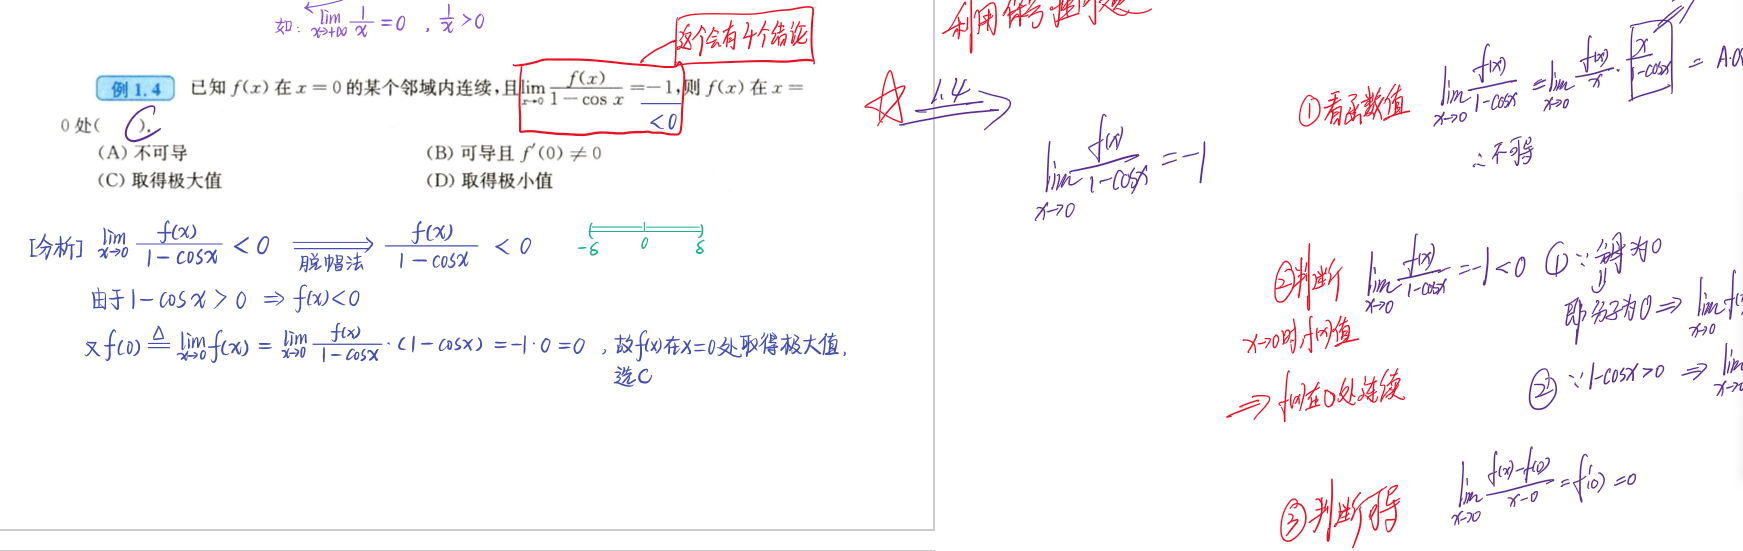 如: lim x→+∞ 1/x = 0 , 1/x > 0
这个会有4个结论
例 1.4 已知 f(x) 在 x = 0 的某个邻域内连续,且 lim x→0 f(x)/(1 − cos x) = −1,则 f(x) 在 x =
<0
0 处( C ).
(A) 不可导 (B) 可导且 f′(0) ≠ 0
(C) 取得极大值 (D) 取得极小值
[分析] lim x→0 f(x)/(1−cosx) < 0 ⟹ 脱帽法 f(x)/(1−cosx) < 0
-δ 0 δ
由于 1−cosx > 0 ⇒ f(x)<0
又 f(0) ≜ lim x→0 f(x) = lim x→0 f(x)/(1−cosx) · (1−cosx) = −1·0 = 0 , 故f(x)在x=0处取得极大值,
选C
☆ 1.4
lim x→0 f(x)/(1−cosx) = −1
①看函数值 lim x→0 f(x)/(1−cosx) = lim x→0 f(x)/x · x/(1−cosx) = A·
∴不可导
②判断 lim x→0 f(x)/(1−cosx) = −1 < 0 ①∵分母为0
x→0时f(x)值
即分子为0 ⇒ lim x→0 f(
⇒ f(x)在0处连续
② ∵1−cosx>0 ⇒ lim x→0
③判断可导 lim x→0 (f(x)−f(0))/(x−0) = f′(0) = 0